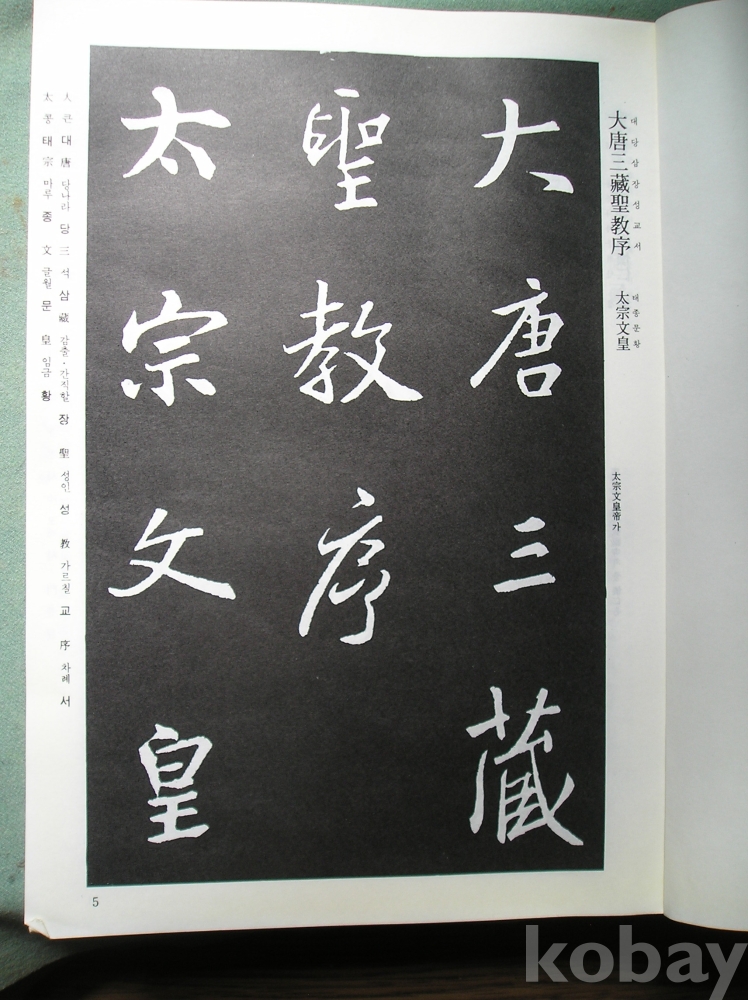 大唐三藏聖教序
대당삼장성교서
太宗文皇
태종문황
太宗文皇帝가
大唐三藏
聖教序
太宗文皇
大 큰 대 唐 당나라 당 三 석 삼 藏 감출·간직할 장 聖 성인 성 教 가르칠 교 序 차례 서
太 콩 태 宗 마루 종 文 글월 문 皇 임금 황
5
kobay